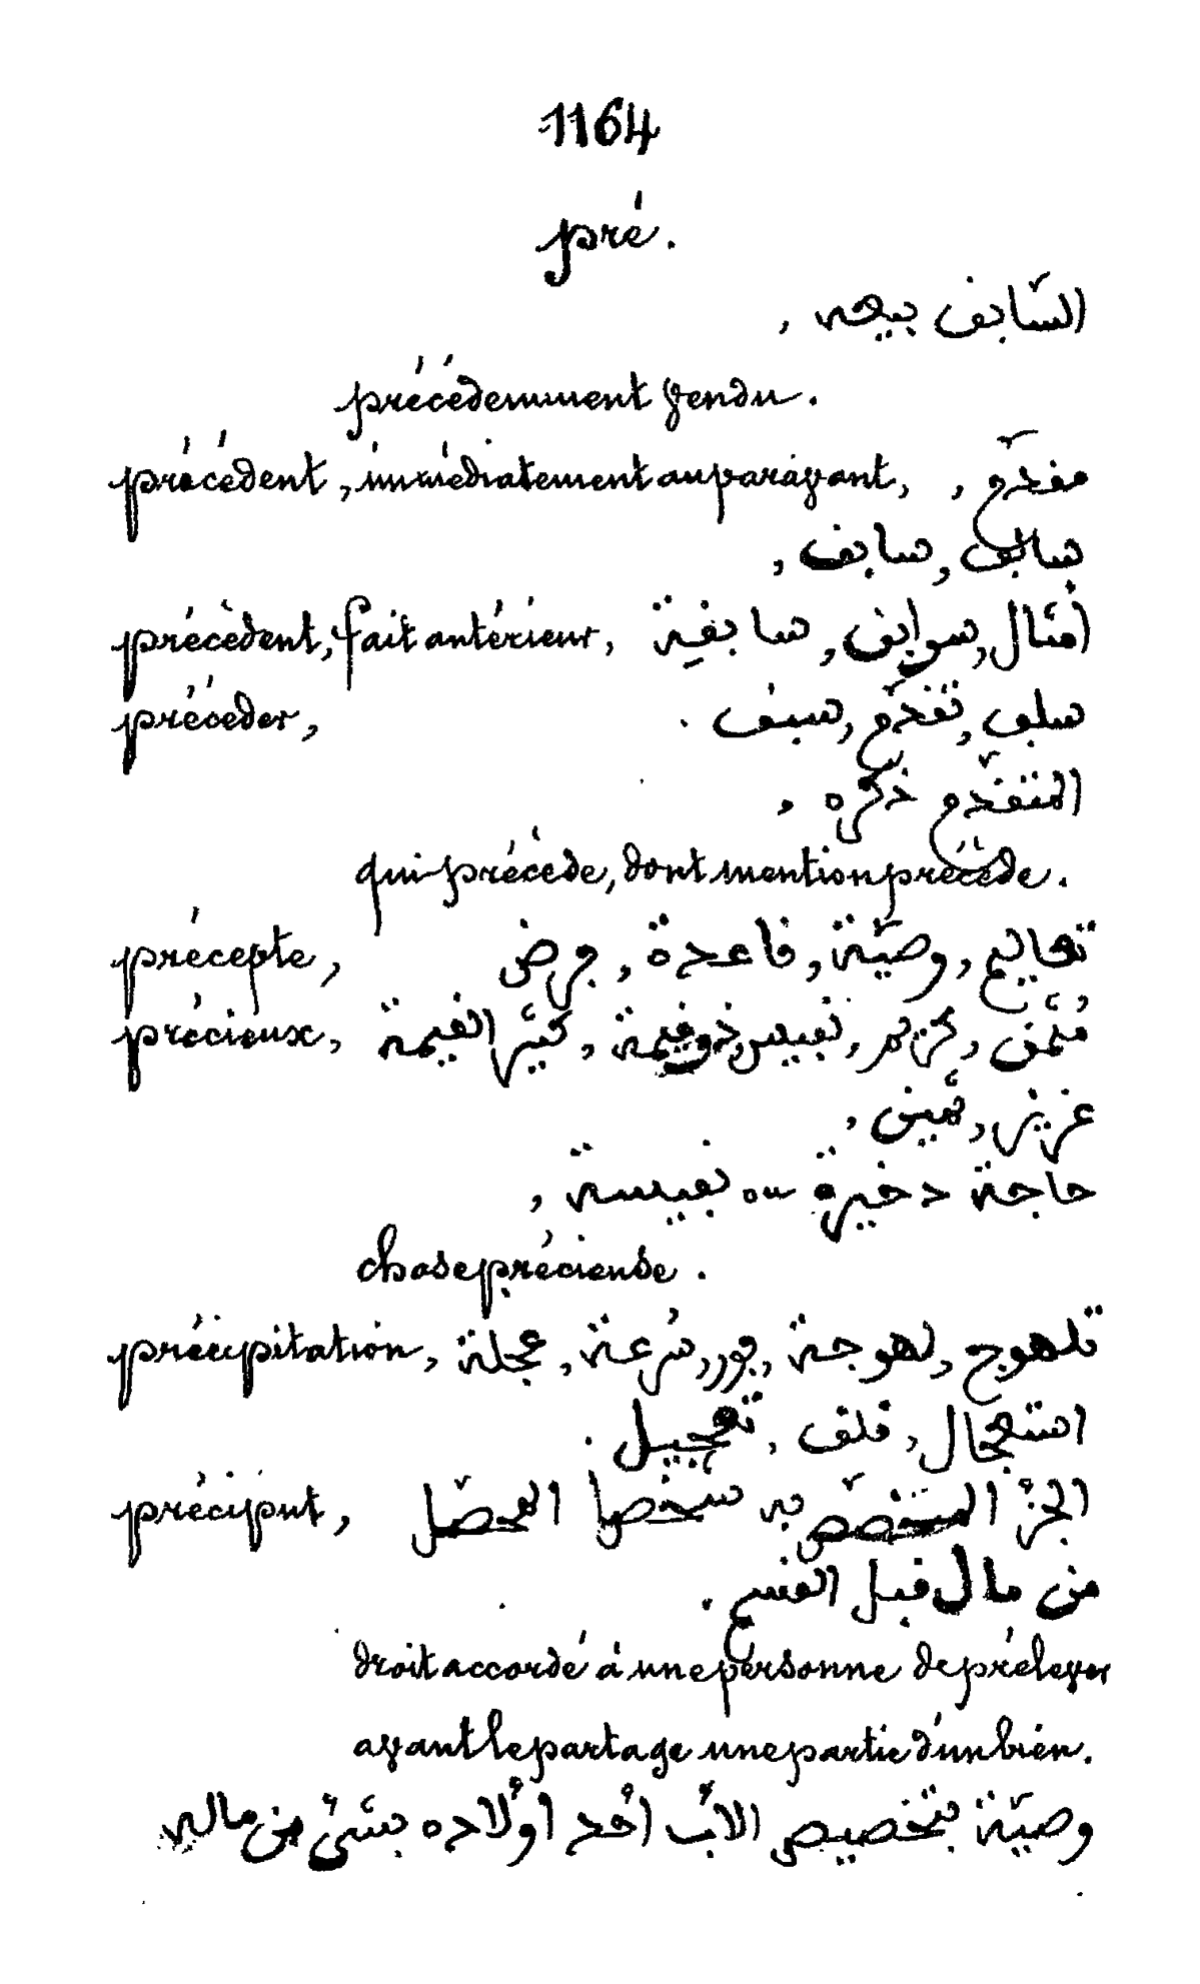 1164
pré.
السّابق بيعه ,
précédemment vendu.
précédent, immédiatement auparavant, مقدّم ,
سالف, سابق ,
précédent, fait antérieur, أمثال, سوابق, سابقية
précéder, سلف, تقدّم, سبق .
المتقدّم ذكره ,
qui précède, dont mention précède.
précepte, تعاليم, وصيّة, قاعدة, فرض
précieux, مُثمَّن, كريم, نفيس, ذو قيمة, كبير القيمة
عزيز, ثمين ,
حاجة دخيرة ou نفيسة ,
chose précieuse.
précipitation, تلهوج, لهوجة, فور, سُرعة, عجلة
استعجال, قلق, تعجيل .
préciput, الجزء المتخصّص به شخصا المحصّل
من مال قبل القسم .
droit accordé à une personne de prélever
avant le partage une partie d'un bien.
وصيّة بتخصيص الأب أحد أولاده بشئ من ماله